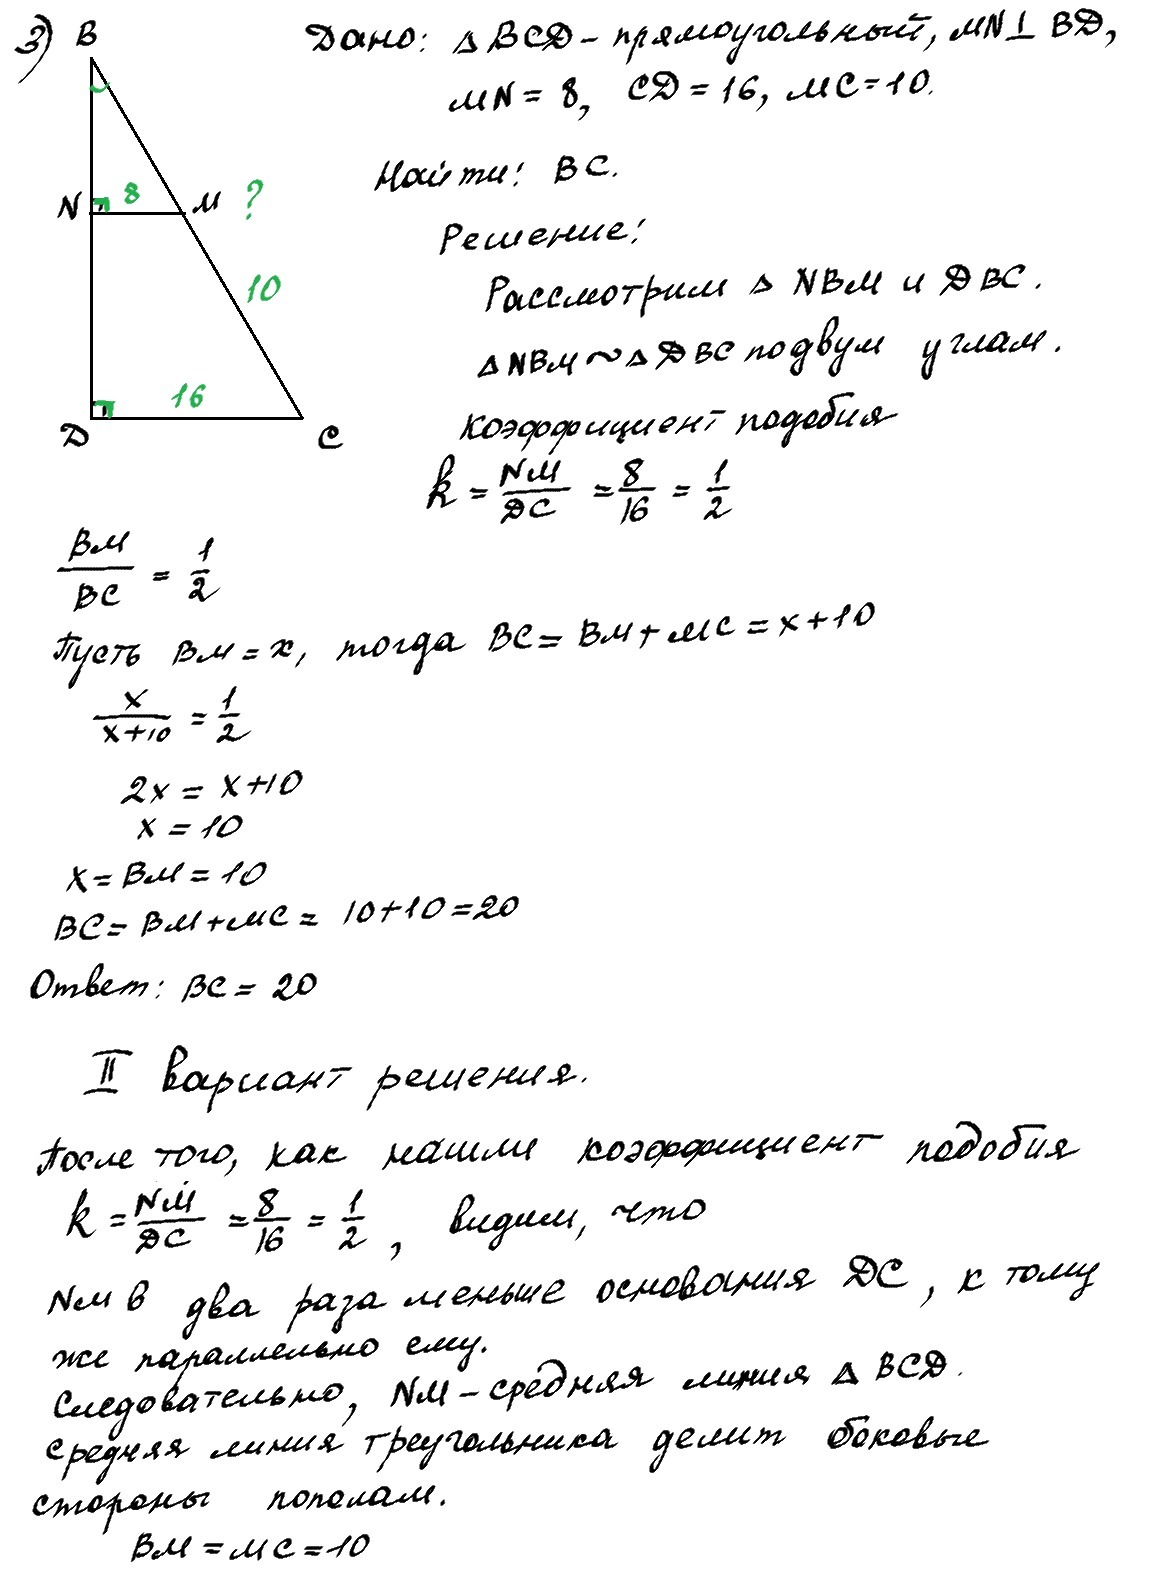 3) B Дано: △ BCD - прямоугольный, MN ⊥ BD,
MN = 8, CD = 16, MC = 10.
Найти: BC.
N 8 M ?
Решение:
10
Рассмотрим △ NBM и DBC.
△ NBM ~ △ DBC по двум углам.
16
D C
Коэффициент подобия
k = NM/DC = 8/16 = 1/2
BM/BC = 1/2
Пусть BM = x, тогда BC = BM + MC = x + 10
x/(x+10) = 1/2
2x = x+10
x = 10
x = BM = 10
BC = BM + MC = 10+10 = 20
Ответ: BC = 20
II вариант решения.
После того, как нашли коэффициент подобия
k = NM/DC = 8/16 = 1/2, видим, что
NM в два раза меньше основания DC, к тому
же параллельно ему.
Следовательно, NM - средняя линия △ BCD.
Средняя линия треугольника делит боковые
стороны пополам.
BM = MC = 10